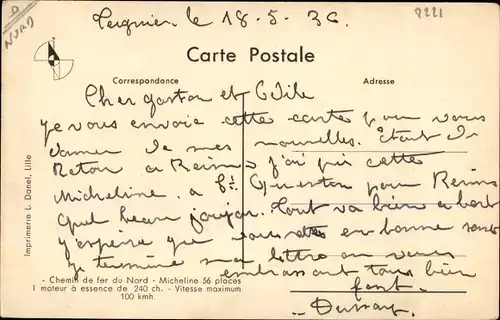 D
NORD
Tergnier, le 18-5-36.
2221
Carte Postale
Correspondance
Adresse
Cher Gaston et Odile
Je vous envoie cette carte pour vous
donner de mes nouvelles. Étant de
Retour à Reims j'ai pris cette
Micheline à St Quentin pour Reims
quel beau joujou. Tout va bien à bord
j'espère que vous êtes en bonne santé
Je termine ma lettre en vous
embrassant tous bien
fort.
Imprimerie L. Danel, Lille
- Chemin de fer du Nord - Micheline 56 places
1 moteur à essence de 240 ch. - Vitesse maximum
100 kmh.